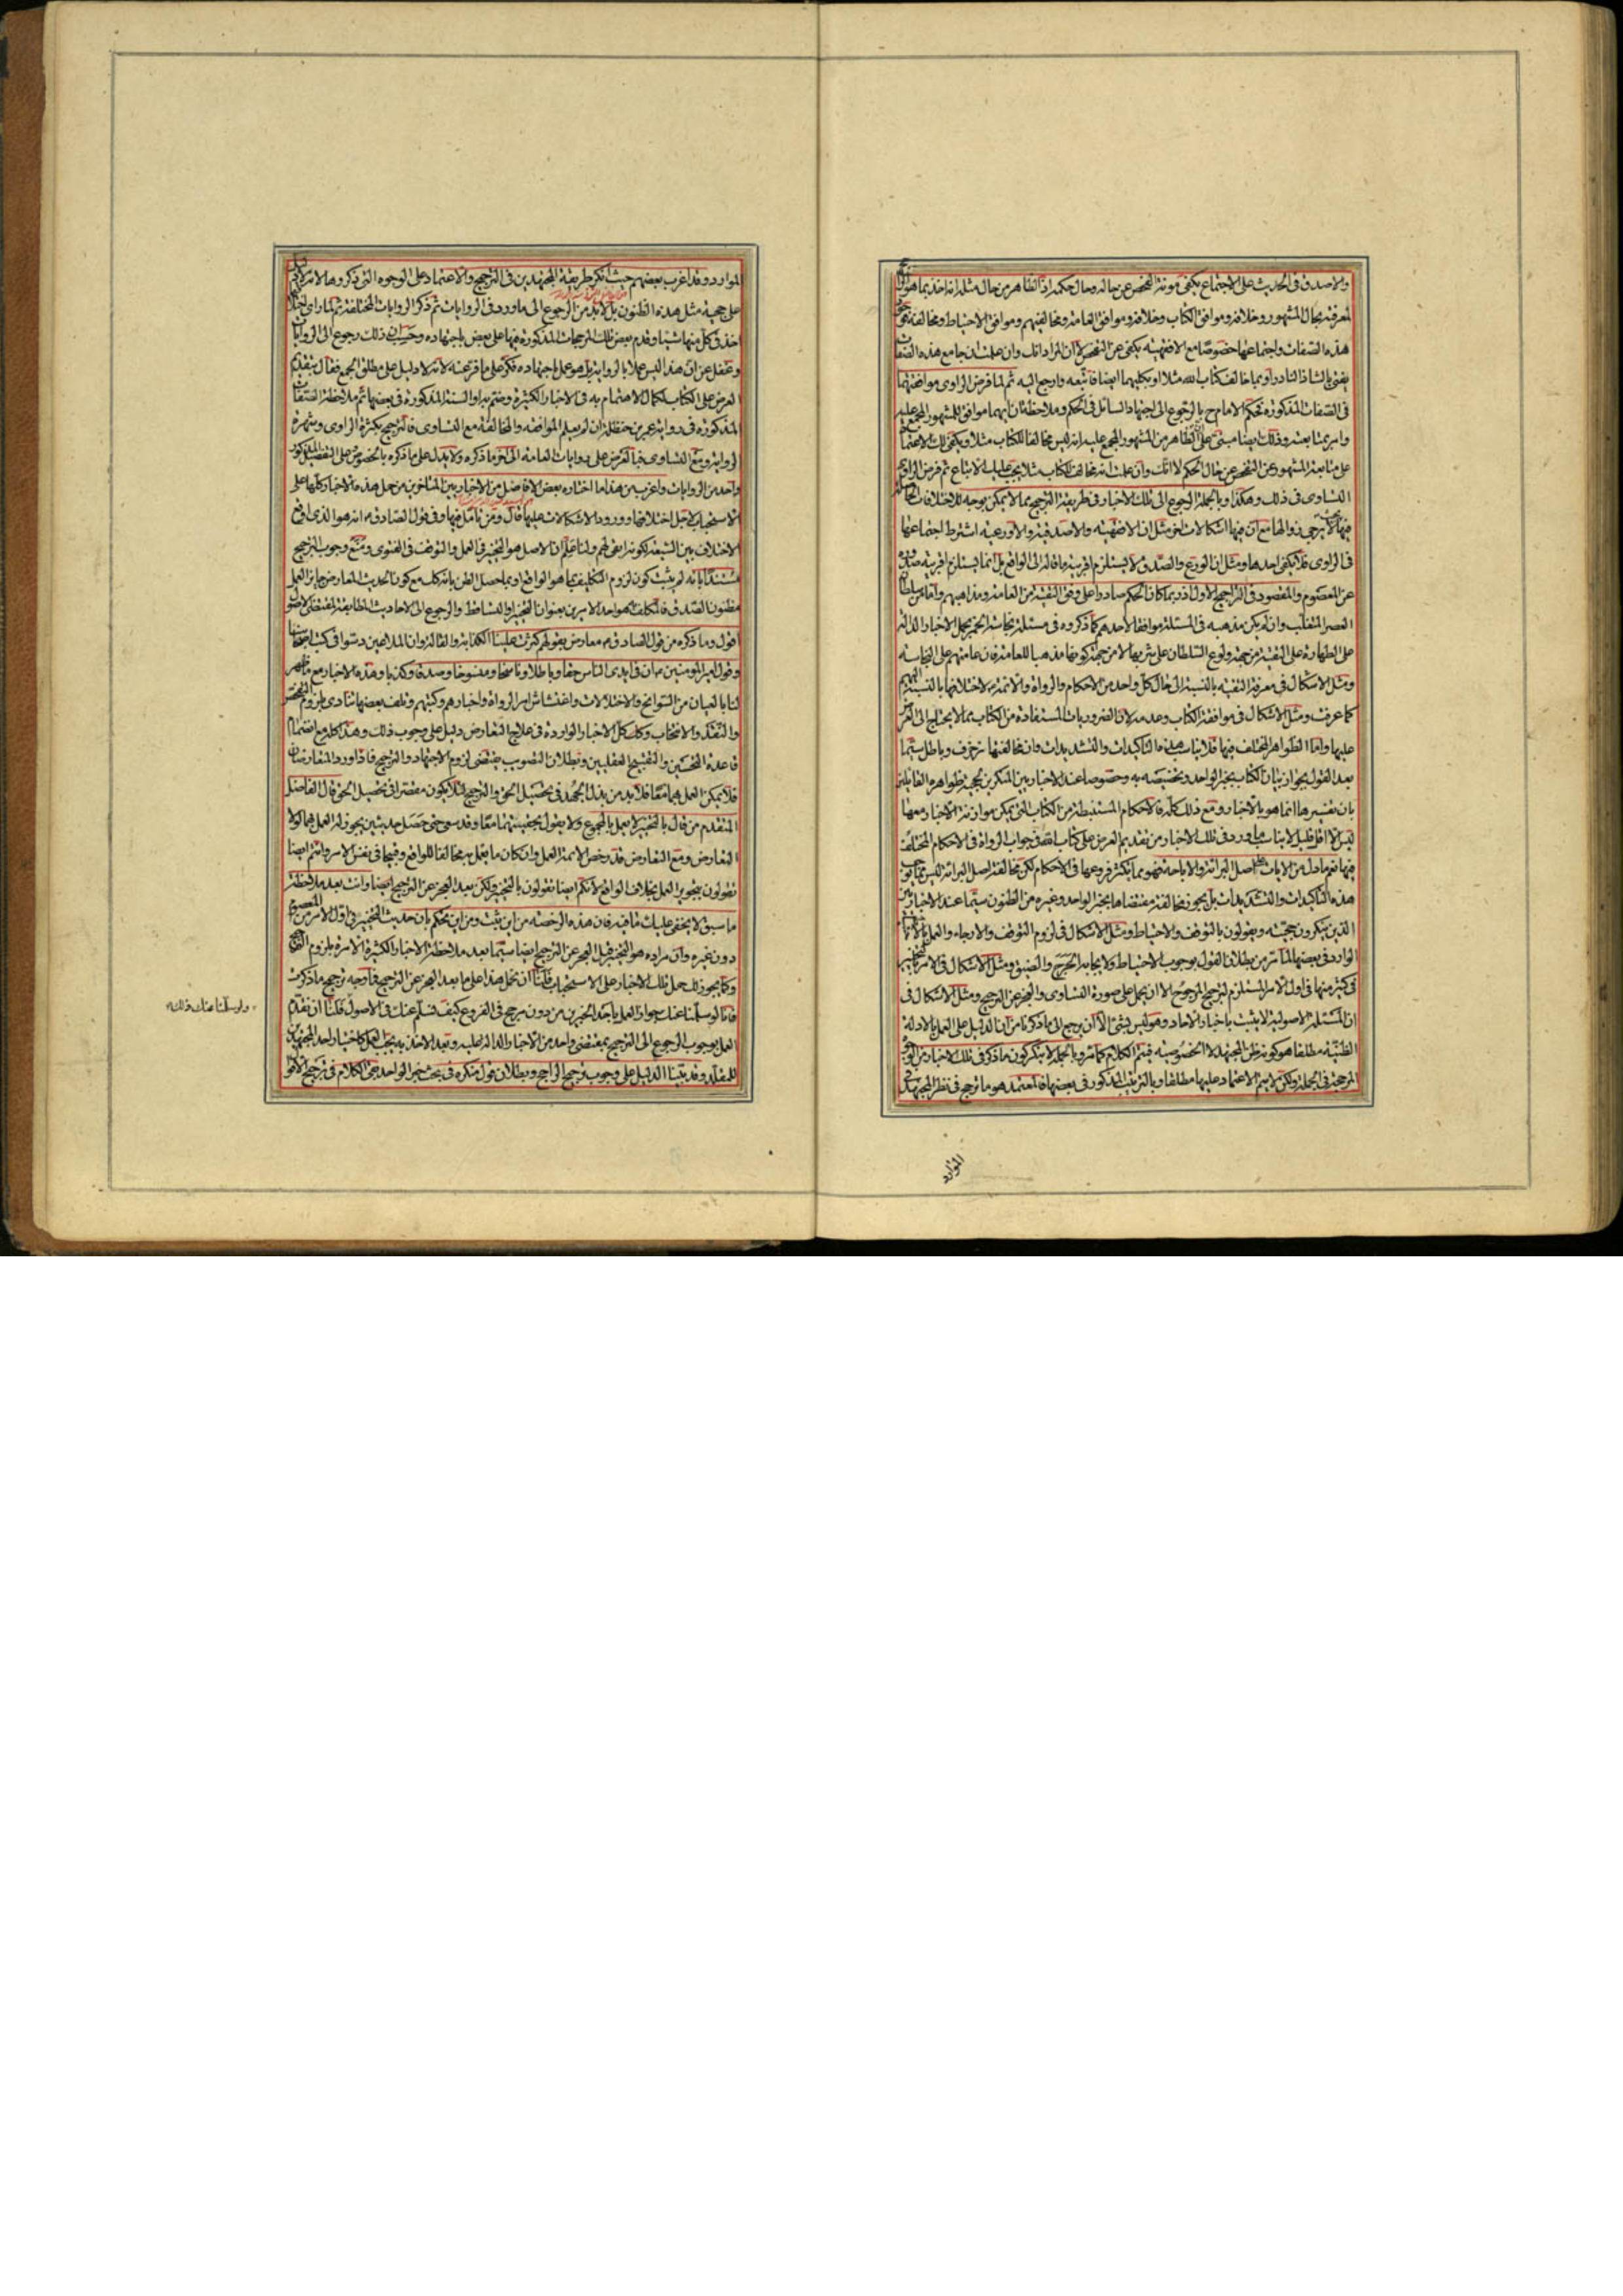 والاصدق فى الحديث على الاجتماع يكفى مونة الفحص عن حاله وحال حكمه اذ الظاهر من حال مثله انه اخذ بما هو
لمعرفة بحال المشهور وخلافه وموافق الكتاب وخلافه وموافق العامة ومخالفيهم وموافق الاحتياط ومخالفه
هذه الصفات واجتماعها خصوصا مع الافقهية يكفى عن التفحص لا ان المراد انك وان علمت ان جامع هذه الصفات
يفتى بالشاذ النادر او بما خالف كتاب الله مثلا او بكليهما ايضا فاتبعه وارجع اليه ثم لما فرض الراوى موافقتهما
فى الصفات المذكورة فحكم الامام ح بالرجوع الى اجتهاد السائل فى الحكم وملاحظة ان ايهما موافق للمشهور المجمع عليه
وامر بمتابعته وذلك ايضا مبتنى على ان الظاهر من المشهور المجمع عليه انه ليس مخالفا للكتاب مثلا ويكفى لك الاعتماد
على متابعة المشهور عن التفحص عن حال الحكم لا انك وان علمت انه مخالف الكتاب مثلا يجب عليك الاتباع ثم فرض الراوى
التساوى فى ذلك وهكذا وبالجملة الرجوع الى تلك الاخبار فى طريقة الترجيح مما لا يمكن بوجه للاختلافات الحاصلة
فيها لا يرجى زوالها مع ان فيها اشكالات اخر مثل ان الافقهية والاصدقية والاورعية اشترط اجتماعها
فى الراوى فلا يكفى احدها ومثل ان الورع والصدق لا يستلزم اقربية ما قاله الى الواقع بل انما يستلزم اقربية صدوره
عن المعصوم والمقصود فى التراجيح الاول اذ ربما كان الحكم صادرا على وفق التقية من العامة ومذاهبهم واما من سلطان
العصر المتغلب وان لم يكن مذهبه فى المسئلة موافقا لاحدهم كما ذكروه فى مسئلة نجاسة الخمر بحمل الاخبار الدالة
على الطهارة على التقية من جهة ولوع السلطان على شربها لا من جهة كونها مذهبا للعامة فان عامتهم على النجاسة
ومثل الاشكال فى معرفة التقية بالنسبة الى حال كل واحد من الاحكام والرواة والائمة لاختلافها بالنسبة اليهم
كما عرفت ومثل الاشكال فى موافقة الكتاب وعدمه لان الضروريات المستفادة من الكتاب مما لا يحتاج الى العرض
عليها واما الظواهر المختلف فيها فلا يناسبه هذه التاكيدات والتشديدات وان مخالفتها زخرف وباطل سيما
بعد القول بجواز بيان الكتاب بخبر الواحد وتخصيصه به وخصوصا عند الاخباريين المنكرين لحجية ظواهره القائلين
بان تفسيرها انما هو بالاخبار ومع ذلك كله فالاحكام المستنبطة من الكتاب التى يمكن موازنة الاخبار معها
ليس الا اقل قليل لا يناسب ما ورد فى تلك الاخبار من تقديم العرض على كتاب الله فى جواب الرواة فى الاحكام المختلف
فيها نعم ما دل من الايات على اصل البرائة والاباحة فهو مما يكثر فروعها فى الاحكام لكن مخالفة اصل البرائة ليس مما يوجب
هذه التاكيدات والتشديدات بل يجوز مخالفة مقتضاها بخبر الواحد وغيره من الظنون سيما عند الاخباريين
الذين ينكرون حجيته ويقولون بالتوقف والاحتياط ومثل الاشكال فى لزوم التوقف والارجاء والعمل بالاحتياط
الوارد فى بعضها لما مر من بطلان القول بوجوب الاحتياط ولايجابه الحرج والضيق ومثل الاشكال فى الامر بالتخيير
فى كثير منها فى اول الامر المستلزم لترجيح المرجوح الا ان يحمل على صورة التساوى والعجز عن الترجيح ومثل الاشكال فى
ان المسئلة الاصولية لا يثبت باخبار الاحاد وهو ليس بشئ الا ان يرجع الى ما ذكرنا من ان الدليل على العمل بالادلة
الظنية مطلقا هو كونه ظن المجتهد لا الخصوصية فيتم الكلام كما مر وبالجملة لا ننكر كون ما ذكر فى تلك الاخبار من الوجوه
المرجحة فى الجملة ولكن لا يتم الاعتماد عليها مطلقا وبالترتيب المذكور فى بعضها فالمعتمد هو ما ترجح فى نظر المجتهد فى
الموارد
الموارد وقد اغرب بعضهم حيث انكر طريقة المجتهدين فى الترجيح والاعتماد على الوجوه التى ذكروها لانه لا دليل
على حجية مثل هذه الظنون بل لابد من الرجوع الى ما ورد فى الروايات ثم ذكر الروايات المختلفة ثم لما راى
اخذ فى كل منها شيئا وقدم بعض تلك المرجحات المذكورة فيها على بعض باجتهاده وحسب ان ذلك رجوع الى الروايات
وغفل عن ان هذا ليس عملا بالرواية بل هو عمل باجتهاده فكر على ما فر عنه لانه لا دليل على مطلق الجمع فقال بتقديم
العرض على الكتاب لكمال الاهتمام به فى الاخبار الكثيرة وضم بها والسنة المذكورة فى بعضها ثم ملاحظة الصفات
المذكورة فى رواية عمر بن حنظلة ان لم يعلم الموافقة والمخالفة مع التساوى فالترجيح بكثرة الراوى وشهرة
الرواية ومع التساوى فبالعرض على روايات العامة الى اخر ما ذكره ولا يدل على ما ذكره بالخصوص على التفصيل المذكور
واحد من الروايات واغرب من هذا ما اختاره بعض الافاضل من الاخباريين المتاخرين من حمل هذه الاخبار كلها على
الاستحباب لاجل اختلافها وورود الاشكالات عليها قال ومن تامل فيها وفى قول الصادق ع انه هو الذى اوقع
الاختلاف بين الشيعة لكونه ابقى لهم ولنا علم ان الاصل هو التخيير فى العمل والتوقف فى الفتوى ومنع وجوب الترجيح
مستندا بانه لم يثبت كون لزوم التكليف بما هو الواقع او بما حصل الظن بانه كك مع كون الحديث المعارض جايز العمل
مظنون الصدق فالمكلف به هو احد الامرين بعنوان التخيير او التساقط والرجوع الى الاحاديث المطابقة لمقتضى الاصول
اقول وما ذكره من قول الصادق ع معارض بقولهم كثرت علينا الكذابة والقالة وان الملاعين دسوا فى كتب اصحابنا
وقول امير المومنين ع ان فى ايدى الناس حقا وباطلا وناسخا ومنسوخا وصدقا وكذبا وهذه الاخبار مع ما ظهر
لنا بالعيان من السوانح والاختلالات واغتشاش امر الرواة واخبارهم وكتبهم وتلف بعضها تنادى بلزوم الفحص
والتنقد والانتخاب وكك كل الاخبار الواردة فى علاج التعارض دليل على وجوب ذلك وهذا كله مع انضمام
قاعدة التحسين والتقبيح العقليين وبطلان التصويب يقتضى لزوم الاجتهاد والترجيح فاذا ورد المتعارضان
فلا يمكن العمل بهما معا فلابد من بذل الجهد فى تحصيل الحق والترجيح لئلا يكون مقصرا فى تحصيل الحق قال الفاضل
المتقدم من قال بالتخيير لا يعمل بالمجموع ولا يقول بحقيتهما معا وقد سعى حتى حصل حديثين يجوز له العمل بهما لولا
التعارض ومع التعارض فقد رخص الائمة العمل وان كان ما يعمل به مخالفا للواقع وقبيحا فى نفس الامر وانتم ايضا
تقولون بتجويز العمل بخلاف الواقع لانكم ايضا تقولون بالتخيير ولكن بعد العجز عن الترجيح ايضا وانت بعد ملاحظة
ما سبق لا يخفى عليك ما فيه فان هذه الرخصة من اين يثبت ومن اين يحكم بان حديث التخيير فى اول الامر من المعصوم
دون غيره وان مراده هو التخيير قبل العجز عن الترجيح ايضا سيما بعد ملاحظة الاخبار الكثيرة الامرة بلزوم الترجيح
وكما يجوز لك حمل تلك الاخبار على الاستحباب فلنا ان نحمل هذا على ما بعد العجز عن الترجيح فما وجه ترجيح ما ذكرت
فانا لو سلمنا عنك جواز العمل باحد الخبرين من دون مرجح فى الفروع كيف نسلم عنك فى الاصول فلنا ان نقدم
العمل بوجوب الرجوع الى الترجيح بمقتضى واحد من الاخبار الدالة عليه وبعد الاخذ به يجب العمل كاختيار احد المجتهدين
للمقلد وقد بينا الدليل على وجوب ترجيح الراجح وبطلان قول منكره فى بحث خبر الواحد بقى الكلام فى ترجيح الاقوال
ولو سلمنا عنك ذلك